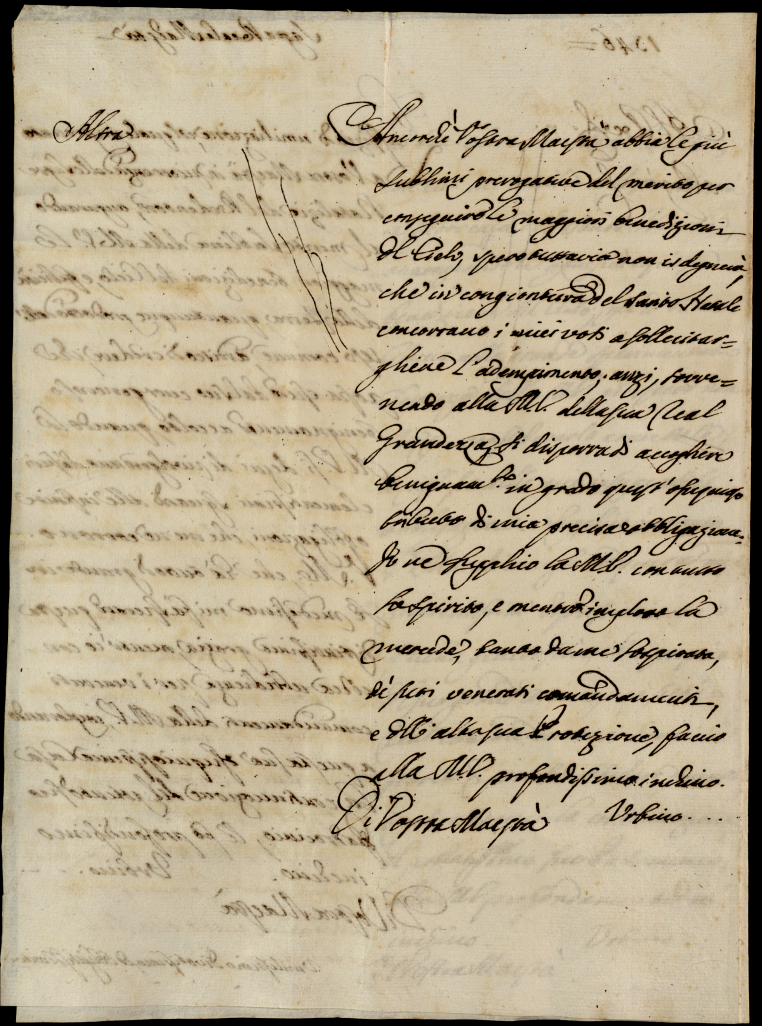 Altra
Ancorchè Vostra Maestà abbia le più
sublimi prerogative del merito per
conseguire le maggiori benedizioni
del Cielo, spero tuttavia non isdegnerà,
che in congiontura del Santo Natale
concorrano i miei voti a sollecitar=
ghiene l'adempimento; anzi, sovve=
nendo alla M.V. della sua Real
Grandezza, si disporrà di accogliere
benignam.te in grado quest' ossequioso
tributo di mia precisa obbligazione.
Io ne supplico la M.V. con tutto
lo spirito, e mentre imploro la
mercede, tanto da me sospirata,
di suoi venerati comandamenti,
e dell' alta sua Protezione, faccio
alla M.V. profondissimo inchino.
Di Vostra Maestà Urbino . . .